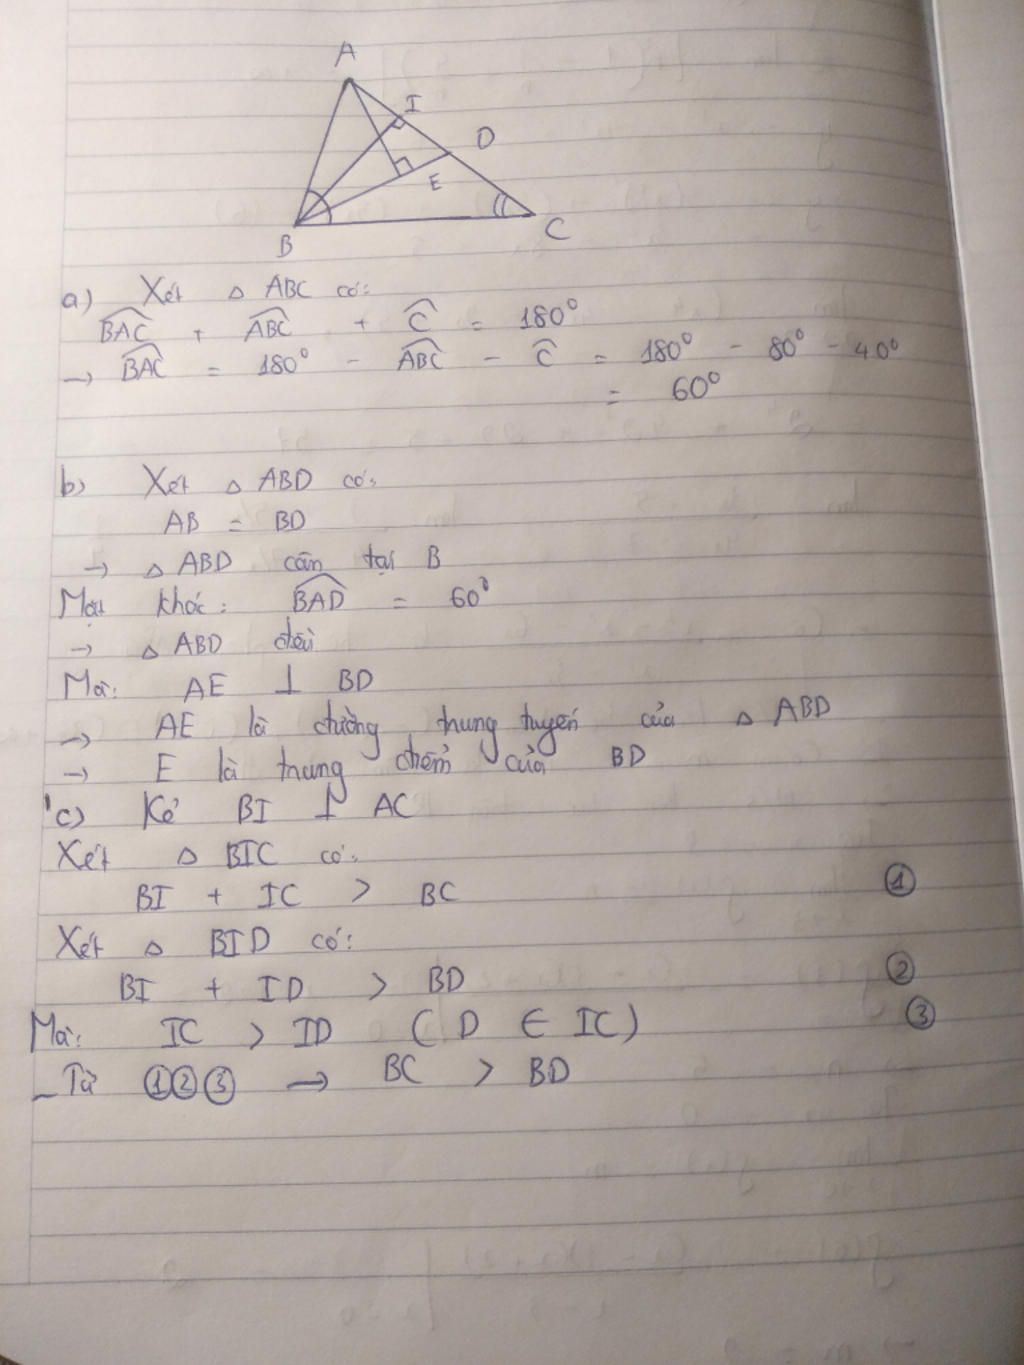 A
I
D
E
B
C
a) Xét △ ABC có:
BAC + ABC + C = 180°
→ BAC = 180° - ABC - C = 180° - 80° - 40°
= 60°
b) Xét △ ABD có:
AB = BD
→ △ ABD cân tại B
Mặt khác: BAD = 60°
→ △ ABD đều
Mà: AE ⊥ BD
→ AE là đường trung tuyến của △ ABD
→ E là trung điểm của BD
c) Kẻ BI ⊥ AC
Xét △ BIC có:
BI + IC > BC ①
Xét △ BID có:
BI + ID > BD ②
Mà: IC > ID ( D ∈ IC) ③
_ Từ ①②③ → BC > BD